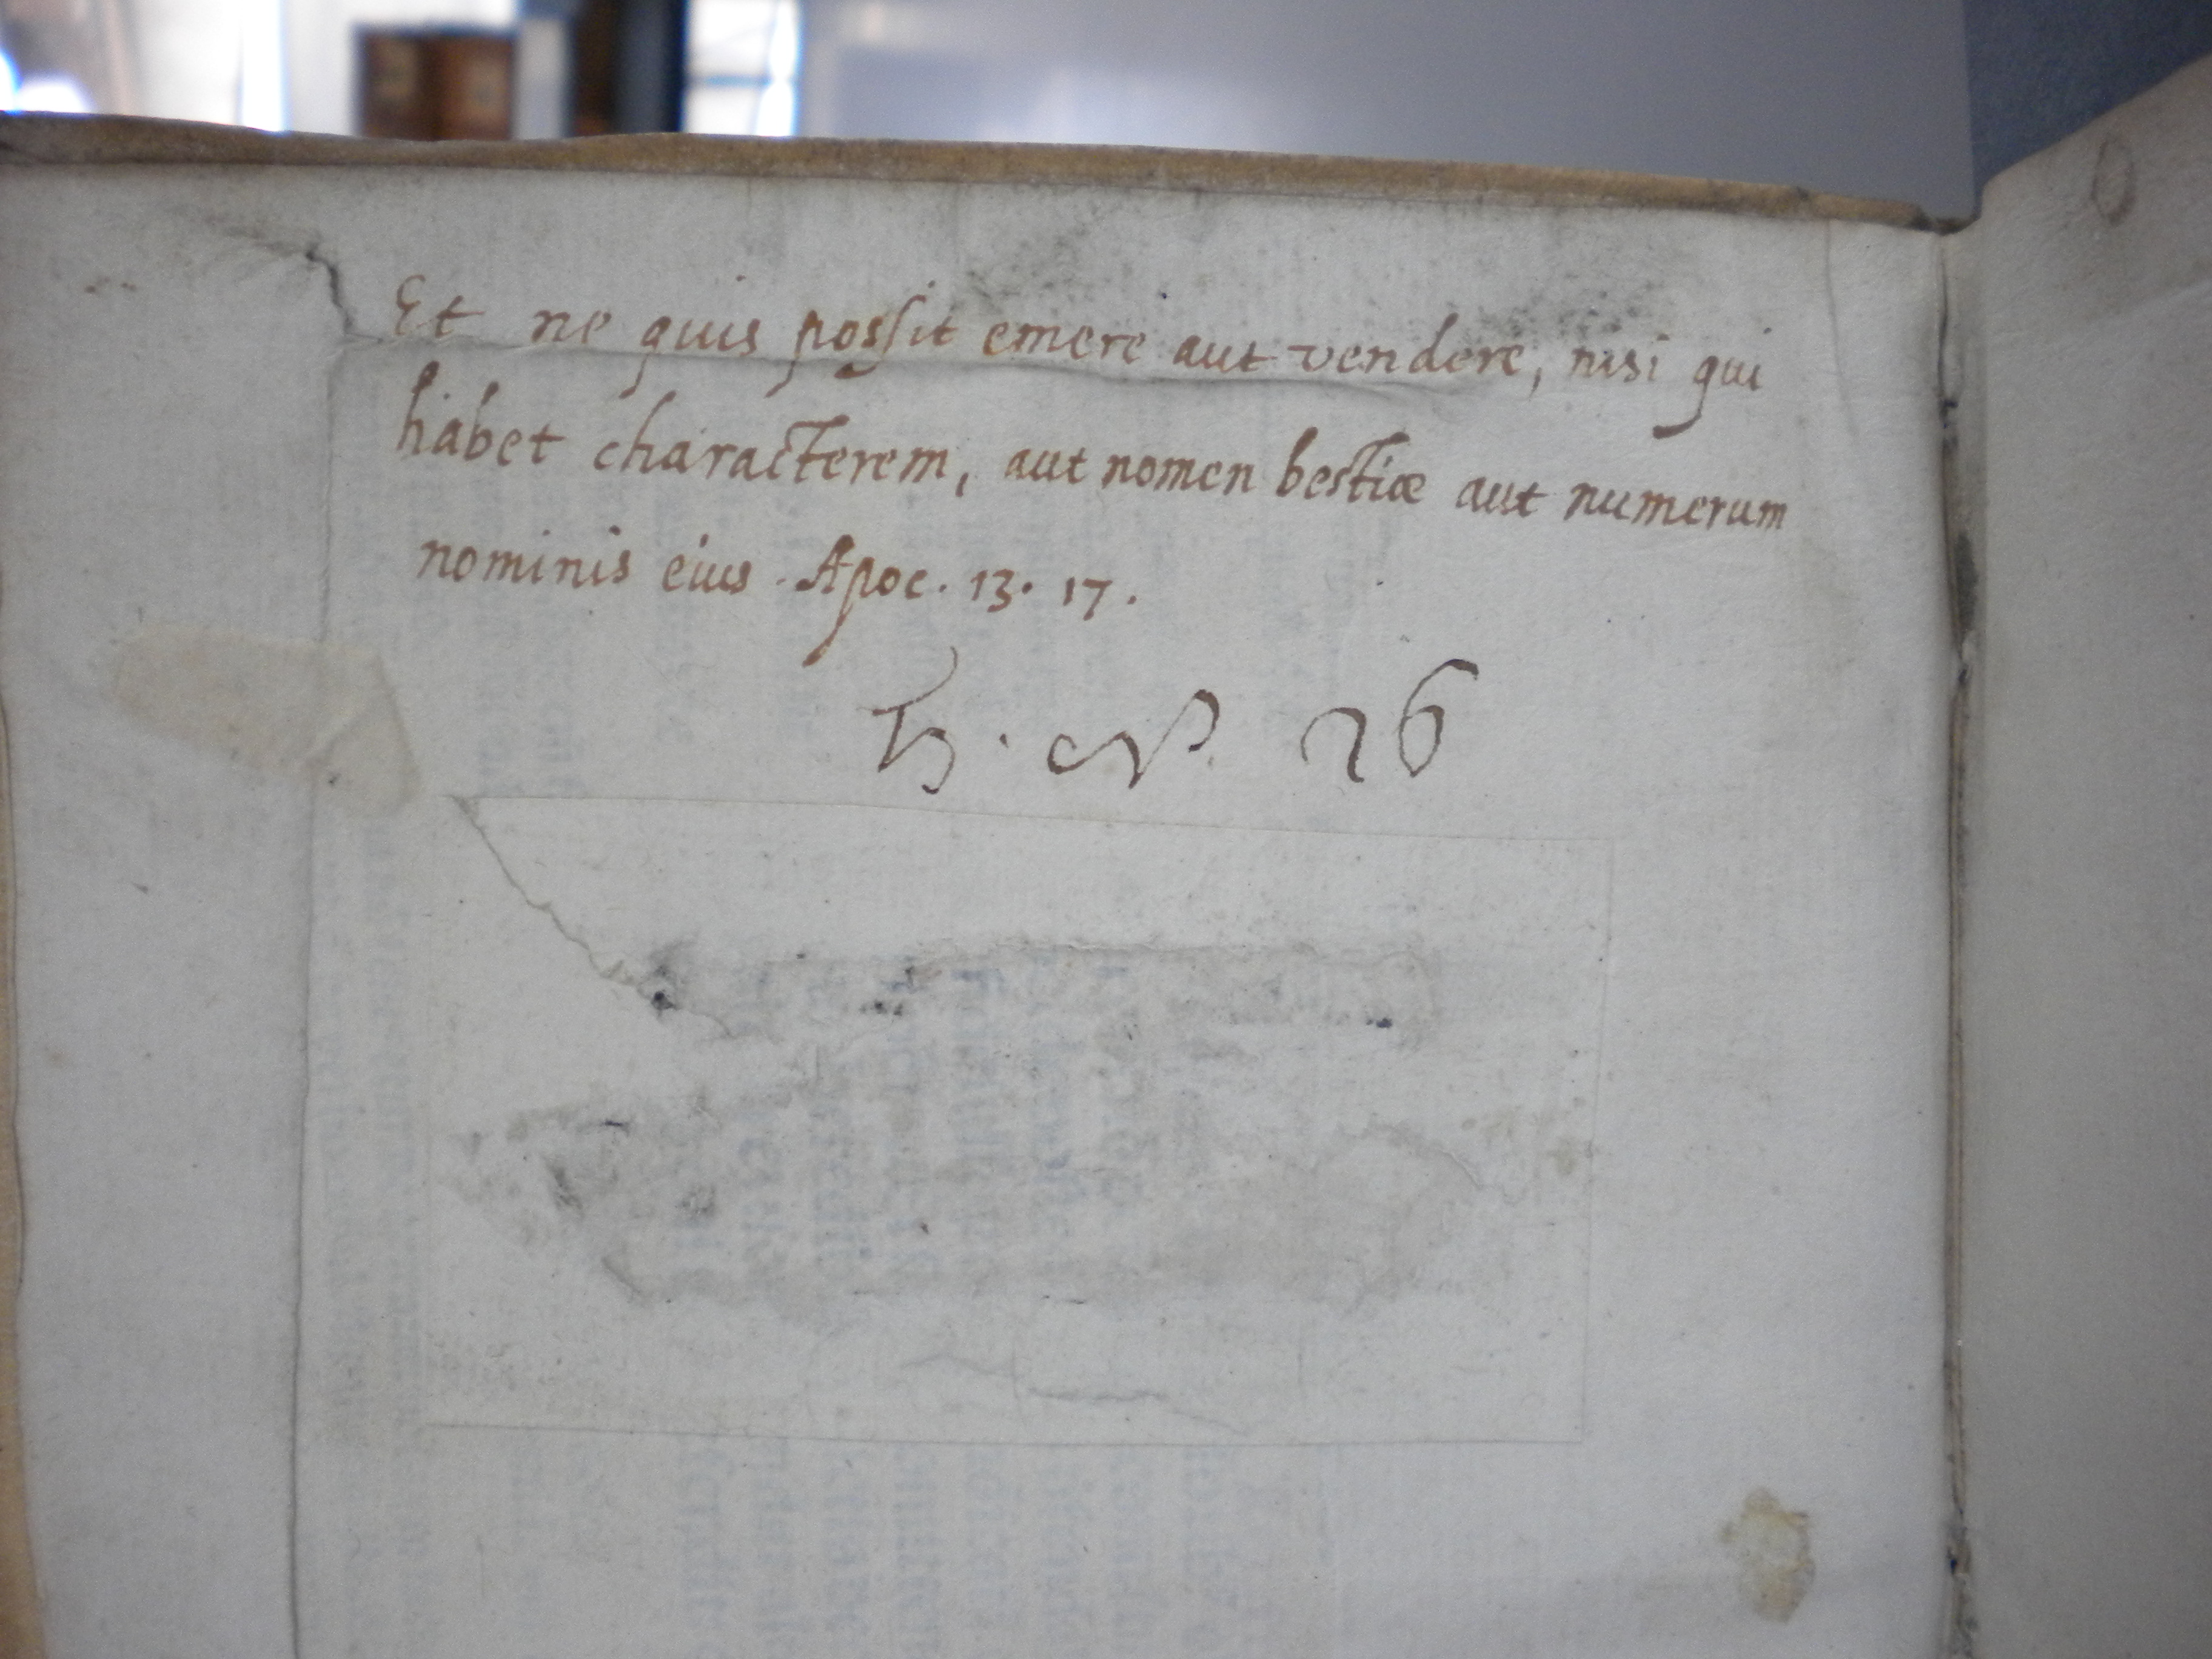 Et ne quis possit emere aut vendere, nisi qui
habet characterem, aut nomen bestiæ aut numerum
nominis eius. Apoc. 13. 17.
26